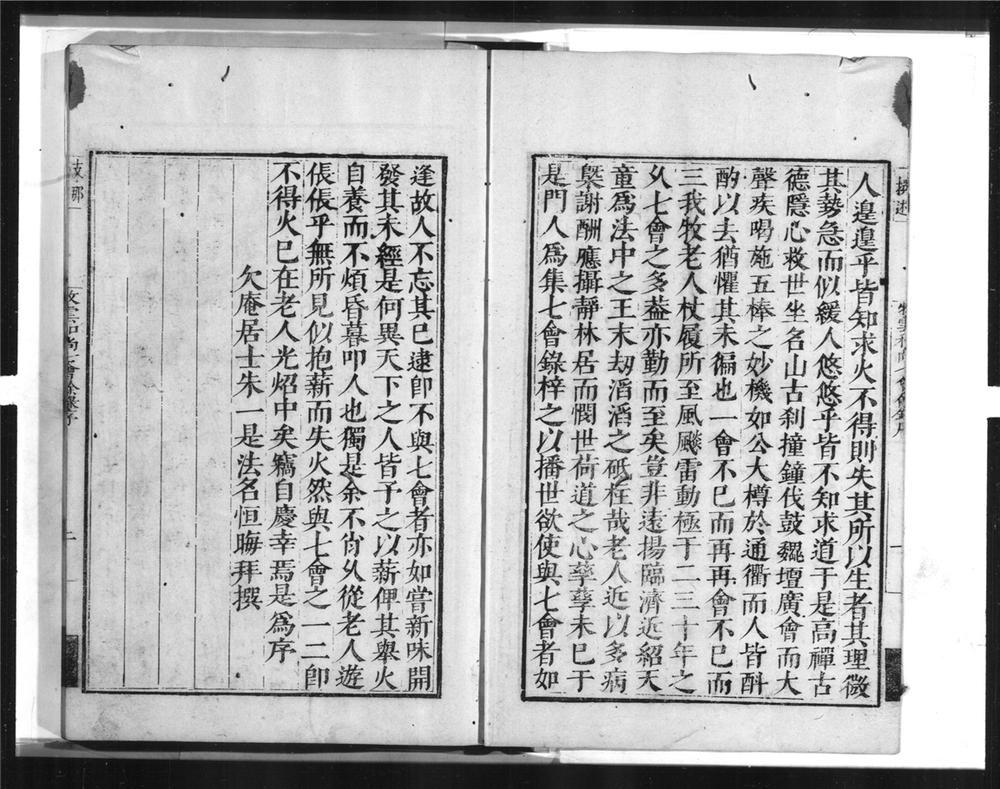 人遑遑乎皆知求火不得則失其所以生者其理微
其勢急而似緩人悠悠乎皆不知求道于是高禪古
德隱心救世坐名山古刹撞鐘伐鼓巍壇廣會而大
聲疾喝施五棒之妙機如公大樽於通衢而人皆斟
酌以去猶懼其未徧也一會不已而再再會不已而
三我牧老人杖履所至風飈雷動極于二三十年之
久七會之多益亦勤而至矣豈非遠揚臨濟近紹天
童爲法中之王末劫滔滔之砥柱哉老人近以多病
槩謝酬應攝靜林居而憫世荷道之心孳孳未已于
是門人爲集七會錄梓之以播世欲使與七會者如
逢故人不忘其已逮卽不與七會者亦如嘗新味開
發其未經是何異天下之人皆予之以薪俾其舉火
自養而不煩昏暮叩人也獨是余不肖久從老人遊
倀倀乎無所見似抱薪而失火然與七會之一二卽
不得火已在老人光炤中矣竊自慶幸焉是爲序
欠庵居士朱一是法名恒晦拜撰
支那
牧雲和尚七會餘錄序
二
撰述
牧雲和尚七會餘錄序
一